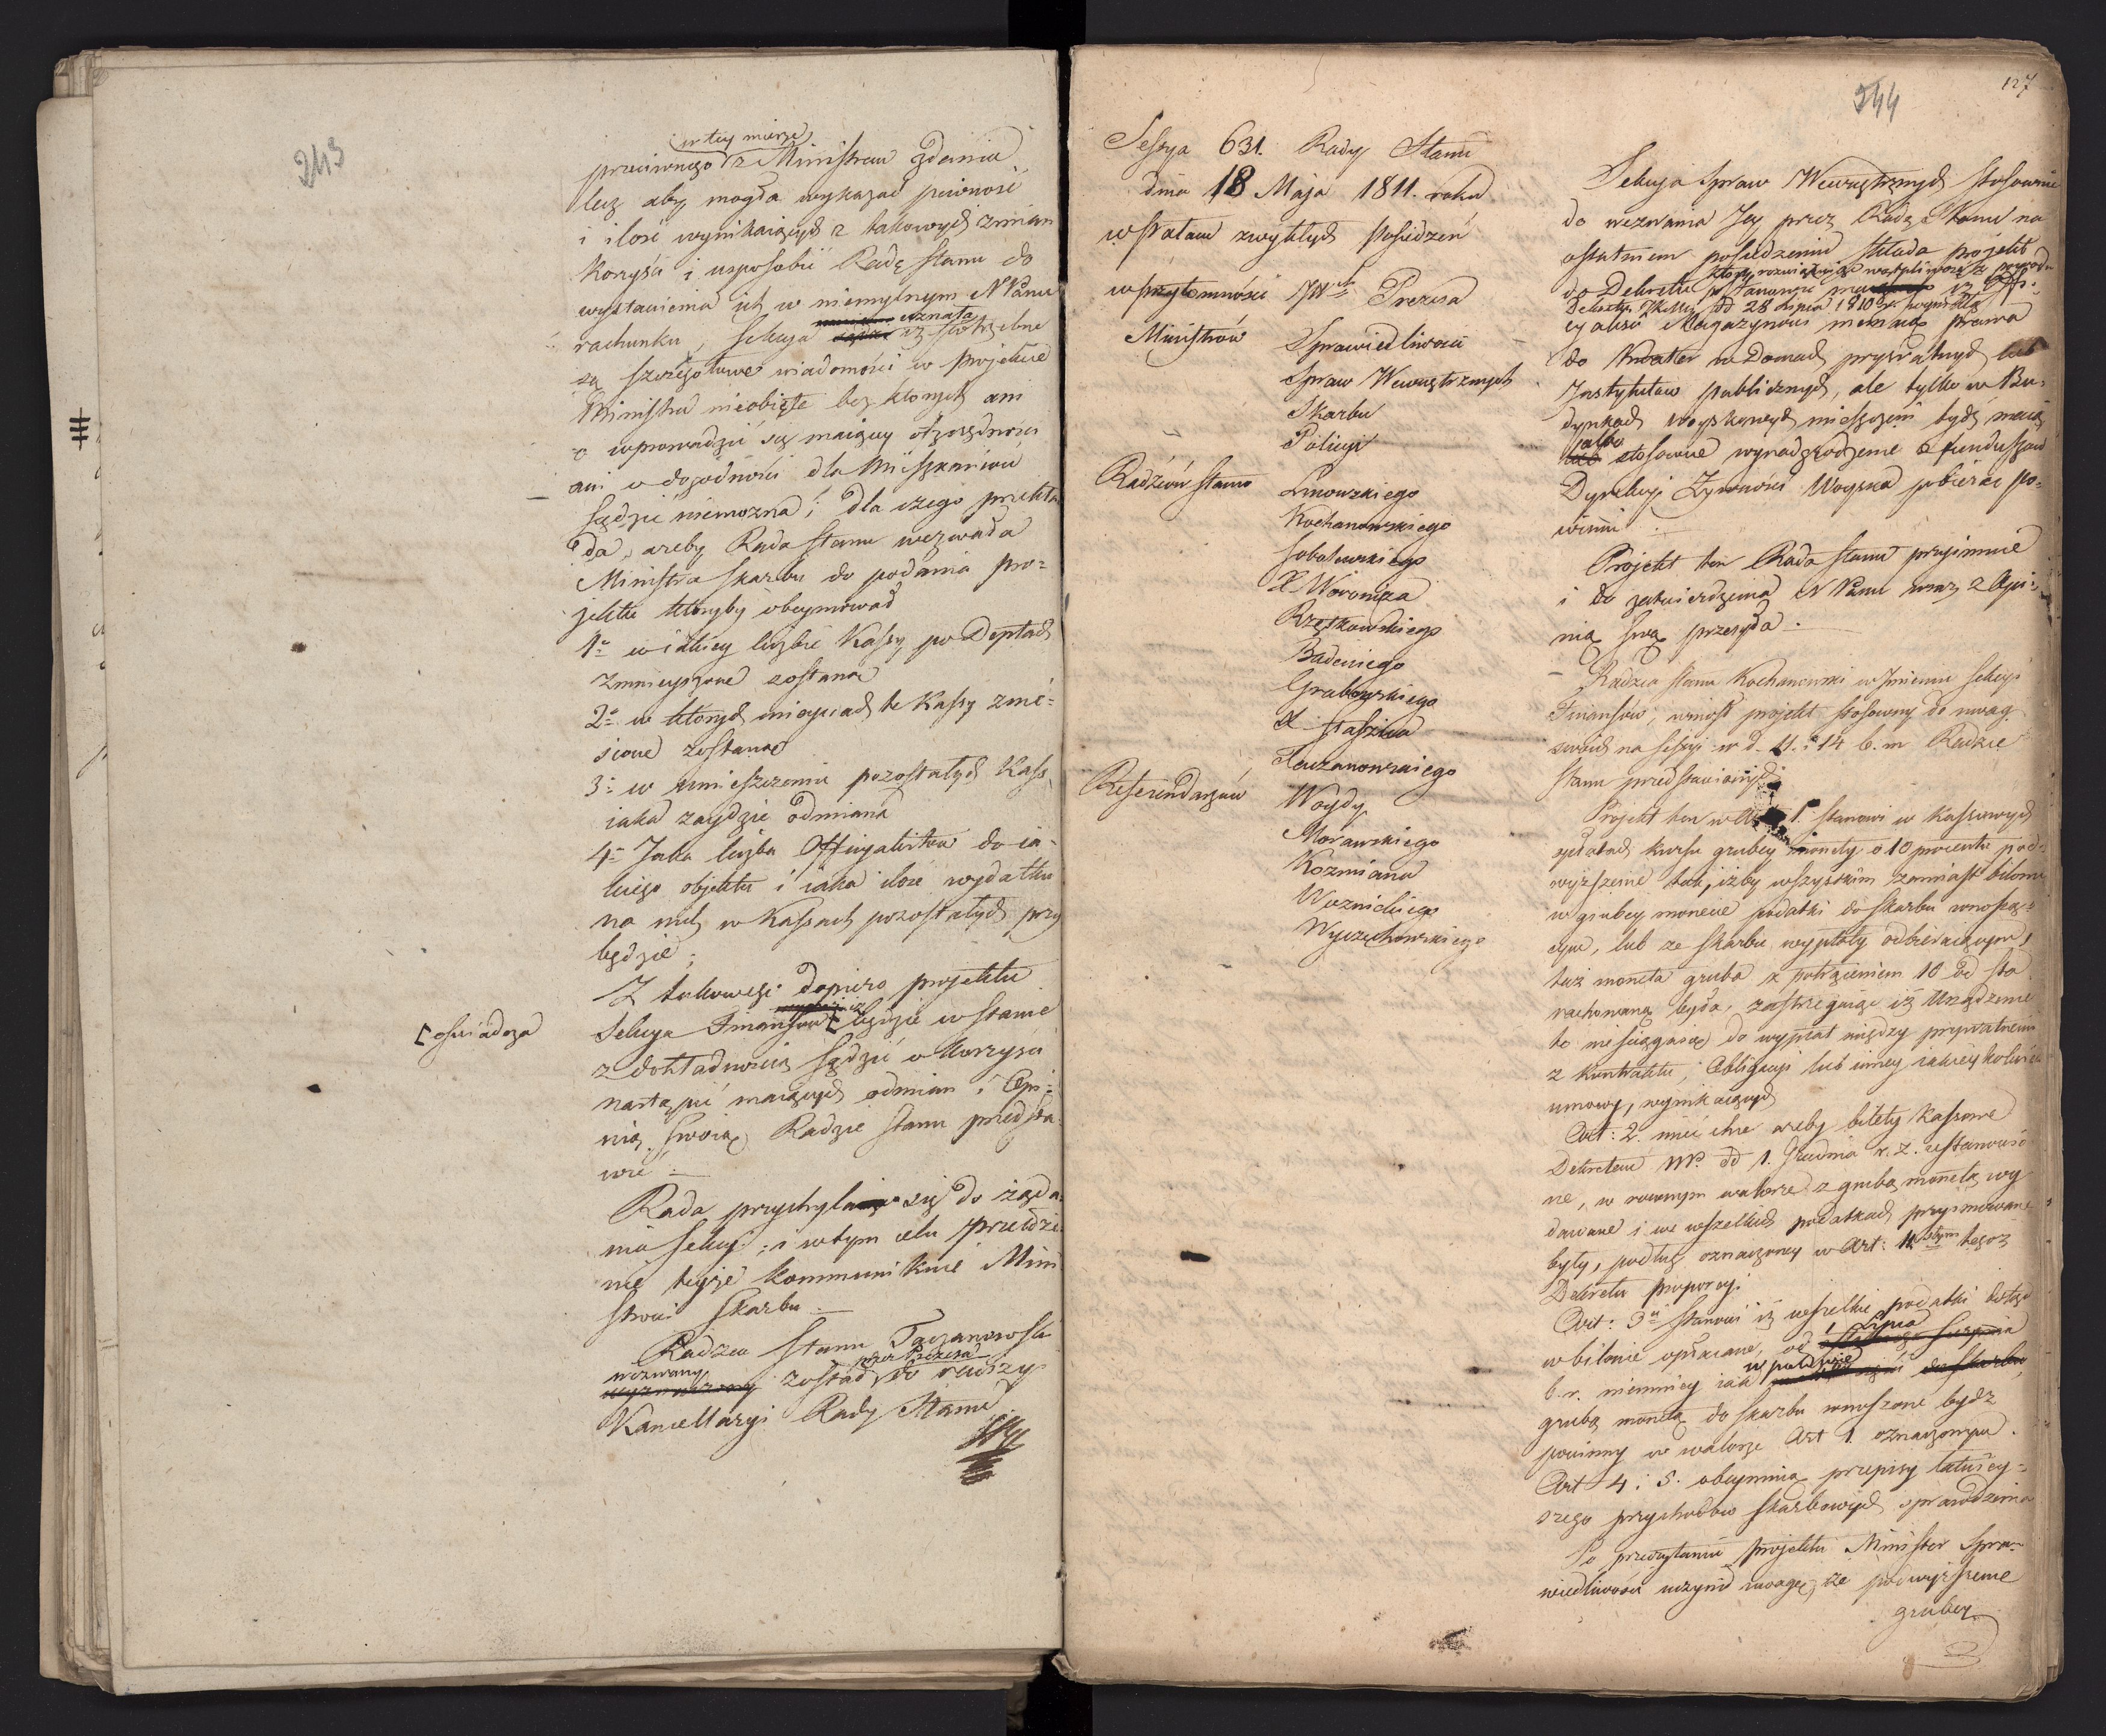 243
w tey mierze
przeciwnego z Ministrem zdania
lecz aby mogła wykazać pewność
i ilość wynikaiących z takowych zmian
Korzyści i usposobić Radę Stanu do
wystawienia ich w niemylnym NPanu
uznała
rachunku, Sekcya iż potrzebne
są szczegółowe wiadomości w projekcie
Ministra nieobięte bez których ani
o wprowadzić się maiącey oszczędności
ani o dogodności dla Mieszkańców
sądzić niemożna; dla czego przekła
da, ażeby Rada Stanu wezwała
Ministra Skarbu do podania pro-
jektu któryby obeymował
1o w iakiey liczbie Kassy po Deptach
zmnieyszone zostaną
2o w których mieyscach te Kassy znie-
sione zostaną
3o w umieszczeniu pozostałych Kass
iaka zaydzie odmiana
4o Jaka liczba Officyalistów do ia-
kiego objektu i iaka ilość wydatku
na nich w Kassach pozostałych przy
będzie;
Z takowego dopiero projektu
[oświadcza
Sekcya Finansów [ iż będzie w stanie
z dokładnością sądzić o korzyści
nastąpić maiących odmian i Opi-
nią swoią Radzie Stanu przedsta-
wić.
Rada przychyla się do żąda-
nia Sekcyi; i w tym celu przełoże
nie teyże kommunikuie Mini
strowi Skarbu.
Radzca Stanu Taczanowski
wezwany przez Prezesa
został do rewizyi
Kancellaryi Rady Stanu
244
127
Sessya 631. Rady Stanu
dnia 18 Maja 1811. roku
w Pałacu zwykłych Posiedzeń
w przytomności JWch Prezesa
Ministrów Sprawiedliwości
Spraw Wewnętrznych
Skarbu
Policyi
Radzców Stanu Linowskiego
Kochanowskiego
Sobolewskiego
X Woronicza
Rzętkowskiego
Badeniego
Grabowskiego
X Staszica
Taczanowskiego
Referendarzów Woydy
Morawskiego
Kozmiana
Woznickiego
Wyczechowskiego
Sekcya Spraw Wewnętrznych stosownie
do wezwania Jey przez Radę Stanu na
ostatniem posiedzeniu składa projekt
który rozwiązuiąc wątpliwości z powodu
do Dekretu stanowi iż Offi-
Dekretu JKMci od 28 lipca 1810 r. wynikłą
cyaliści Magazynowi nie maią prawa
do Kwater w Domach prywatnych lub
Instytutów publicznych, ale tylko w Bu-
dynkach woyskowych mieszczeni bydź maią
albo
stosowne wynadgrodzenie z funduszów
Dyrekcyi Żywności Woyska pobierać po-
winni.
Projekt ten Rada Stanu przyimuie
i do zatwierdzenia NPanu wraz z Opi-
nią swą przesyła.
Radzca Stanu Kochanowski w Imieniu Sekcyi
Finansów, wniósł projekt stosowny do uwag
swoich na Sessyi w d. 11. i 14 b. m Radzie
Stanu przedstawionych
Projekt ten w Art 1. stanowi w Kassowych
opłatach kursu grubey monety o 10 procentu pod-
wyższenie tak, iżby wszystkim zamiast bilonu
w grubey monecie podatki do Skarbu wnoszą-
cym, lub ze Skarbu wypłaty odbieraiącym,
taż moneta gruba z potrąceniem 10 od sta
rachowaną była, zastrzegaiąc iż Urządzenie
to nie sciąga się do wypłat między prywatnemi
z kontraktu, Obligacyi lub inney iakieykolwiek
umowy, wynikaiących
Art: 2. mieć chce ażeby bilety Kassowe
Dekretem NP. dd 1. Grudnia r. z. ustanowio-
ne, w rownym walorze z grubą monetą wy
dawane i we wszelkich podatkach przyimowane
były, podług oznaczoney w Art: 11stym tegoż
Dekretu proporcyi
Art: 3ci stanowi iż wszelkie podatki dotąd
1 Lipca
w bilonie opłacane, od
w połowie
b. r. niemniey iak
grubą monetą do Skarbu wnoszone bydź
powinny w walorze Art 1. oznaczonym.
Art 4 i 5. obeymuią przepisy łatwiey-
szego przychodów skarbowych sprawdzenia
Po przeczytaniu projektu Minister Spra-
wiedliwości uczynił uwagę, że podwyższenie
grubey